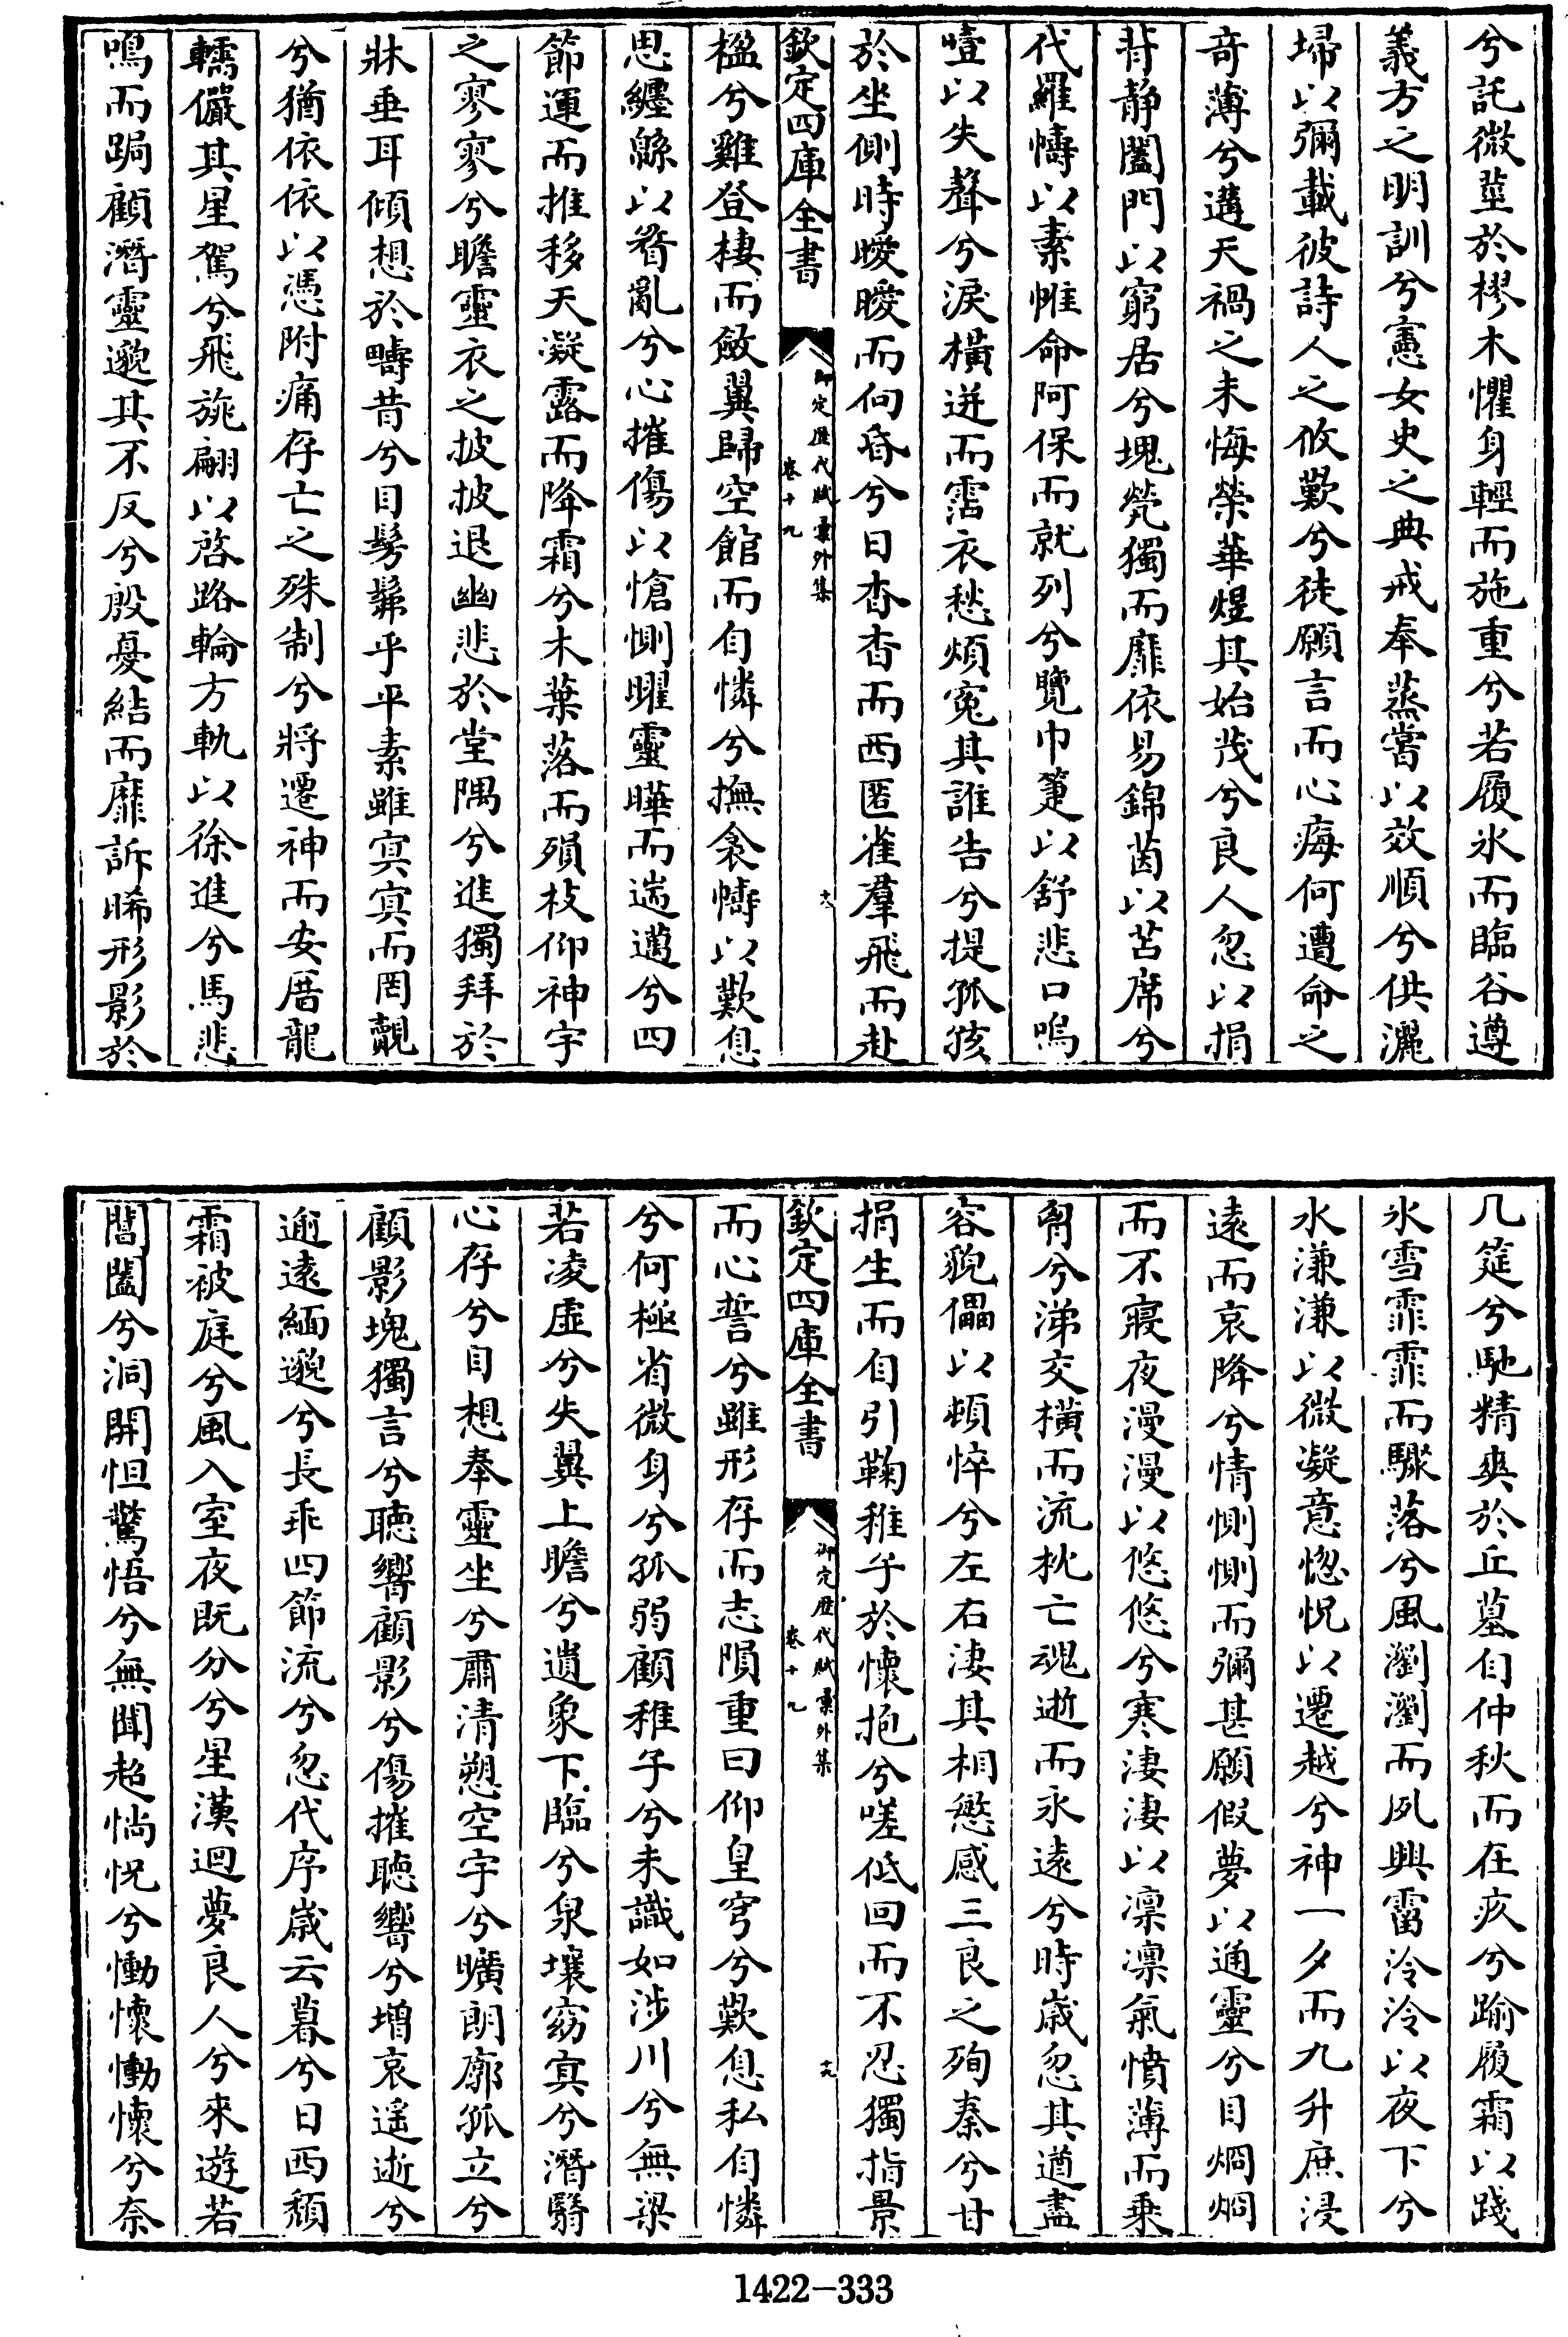 兮託微莖於樛木懼身輕而施重兮若履氷而臨谷遵
義方之明訓兮憲女史之典戒奉蒸嘗以效順兮供灑
埽以彌載彼詩人之攸歎兮徒願言而心痗何遭命之
奇薄兮遘天禍之未悔榮華煜其始茂兮良人忽以捐
背静闔門以窮居兮塊煢獨而靡依易錦茵以苫席兮
代羅幬以素帷命阿保而就列兮覽巾箑以舒悲口嗚
噎以失聲兮淚橫迸而霑衣愁煩寃其誰告兮提孤孩
於坐側時曖曖而向昏兮日杳杳而西匿雀羣飛而赴
欽定四庫全書
御定歷代賦彙外集
卷十九
十八
楹兮雞登棲而斂翼歸空館而自憐兮撫衾幬以歎息
思纏緜以瞀亂兮心摧傷以愴惻曜靈曄而遄邁兮四
節運而推移天凝露而降霜兮木葉落而殞枝仰神宇
之寥寥兮瞻靈衣之披披退幽悲於堂隅兮進獨拜於
牀垂耳傾想於疇昔兮目髣髴乎平素雖寞寞而罔覿
兮猶依依以憑附痛存亡之殊制兮將遷神而安厝龍
轜儼其星駕兮飛旐翩以啓路輪方軌以徐進兮馬悲
鳴而跼顧潛靈邈其不反兮殷憂結而靡訴睎形影於
几筵兮馳精爽於丘墓自仲秋而在疚兮踰履霜以踐
氷雪霏霏而驟落兮風瀏瀏而夙興霤泠泠以夜下兮
水溓溓以微凝意惚怳以遷越兮神一夕而九升庶浸
遠而哀降兮情惻惻而彌甚願假夢以通靈兮目炯炯
而不寢夜漫漫以悠悠兮寒淒淒以凜凜氣憤薄而乗
胷兮涕交橫而流枕亡魂逝而永遠兮時歲忽其遒盡
容貌儡以頓悴兮左右淒其相愍感三良之殉秦兮甘
捐生而自引鞠稚子於懷抱兮嗟低回而不忍獨指景
欽定四庫全書
御定歷代賦彙外集
卷十九
十九
而心誓兮雖形存而志隕重曰仰皇穹兮歎息私自憐
兮何極省微身兮孤弱顧稚子兮未識如涉川兮無梁
若凌虛兮失翼上瞻兮遺象下臨兮泉壤窈寞兮潛翳
心存兮目想奉靈坐兮肅清愬空宇兮曠朗廓孤立兮
顧影塊獨言兮聽響顧影兮傷摧聽響兮增哀遥逝兮
逾遠緬邈兮長乖四節流兮忽代序歲云暮兮日西頹
霜被庭兮風入室夜既分兮星漢迴夢良人兮來遊若
閶闔兮洞開怛驚悟兮無聞超惝怳兮慟懷慟懷兮奈
1422-333